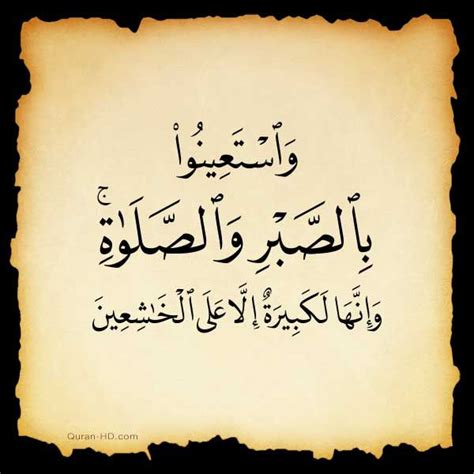 وَٱسْتَعِينُوا۟
بِٱلصَّبْرِ وَٱلصَّلَوٰةِ ۚ
وَإِنَّهَا لَكَبِيرَةٌ إِلَّا عَلَى ٱلْخَـٰشِعِينَ
Quran-HD.com